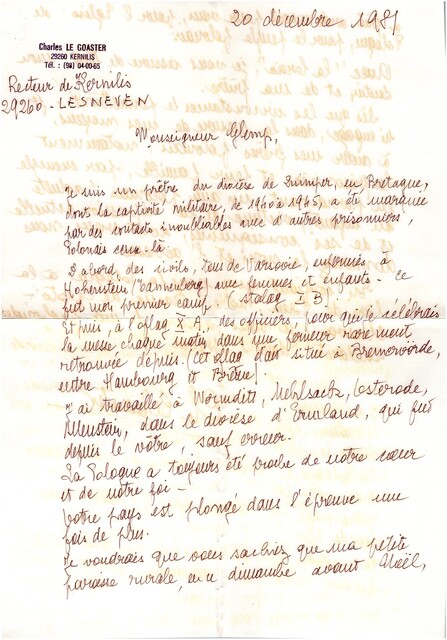 20 décembre 1981
Charles LE GOASTER
29260 KERNILIS
Tél : (98) 04-00-65
Recteur de Kernilis
29260 - LESNEVEN
Monseigneur Glemp,
Je suis un prêtre du diocèse de Quimper, en Bretagne,
dont la captivité militaire, de 1940 à 1945, a été marquée
par des contacts inoubliables avec d'autres prisonniers,
Polonais ceux-là.
D'abord, des civils, tous de Varsovie, enfermés à
Hohenstein (Tannenberg) avec femmes et enfants - ce
fut mon premier camp. (Stalag I B)
Et puis, à l'oflag X A, des officiers, pour qui je célébrais
la messe chaque matin dans une ferveur rarement
retrouvée depuis. (cet oflag était situé à Bremervörde,
entre Hambourg et Brême).
J'ai travaillé à Wormditt, Mehlsack, Osterode,
Allenstein, dans le diocèse d'Ermland, qui fut
depuis le vôtre, sauf erreur.
La Pologne a toujours été proche de notre cœur
et de notre foi -
Votre pays est plongé dans l'épreuve une
fois de plus.
Je voudrais que vous sachiez que ma petite
paroisse rurale, en ce dimanche avant Noël,